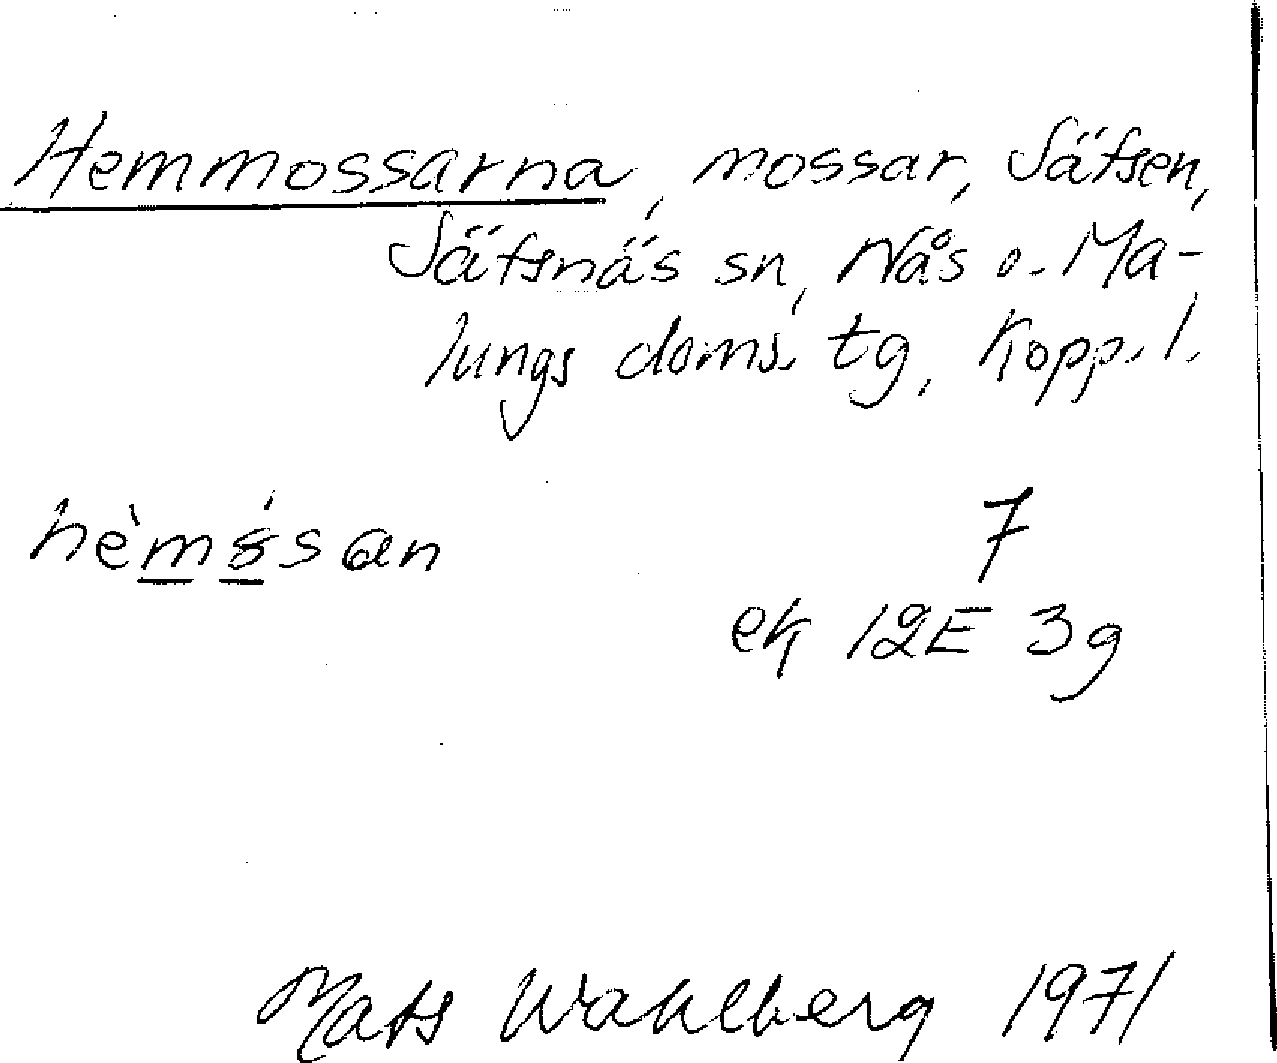 Hemmossarna, mossar, Säfsen,
Säfsnäs sn, Nås o. Ma-
lungs doms. tg, Kopp. l.
7
ek 12E 3g
Mats Wahlberg 1971